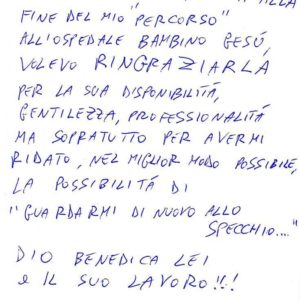 ALLA
FINE DEL MIO "PERCORSO"
ALL'OSPEDALE BAMBINO GESÚ,
VOLEVO RINGRAZIARLA
PER LA SUA DISPONIBILITÁ,
GENTILEZZA, PROFESSIONALITÁ
MA SOPRATUTTO PER AVERMI
RIDATO, NEL MIGLIOR MODO POSSIBILE,
LA POSSIBILITÁ DI
"GUARDARMI DI NUOVO ALLO
SPECCHIO...."
DIO BENEDICA LEI
e IL SUO LAVORO!!!